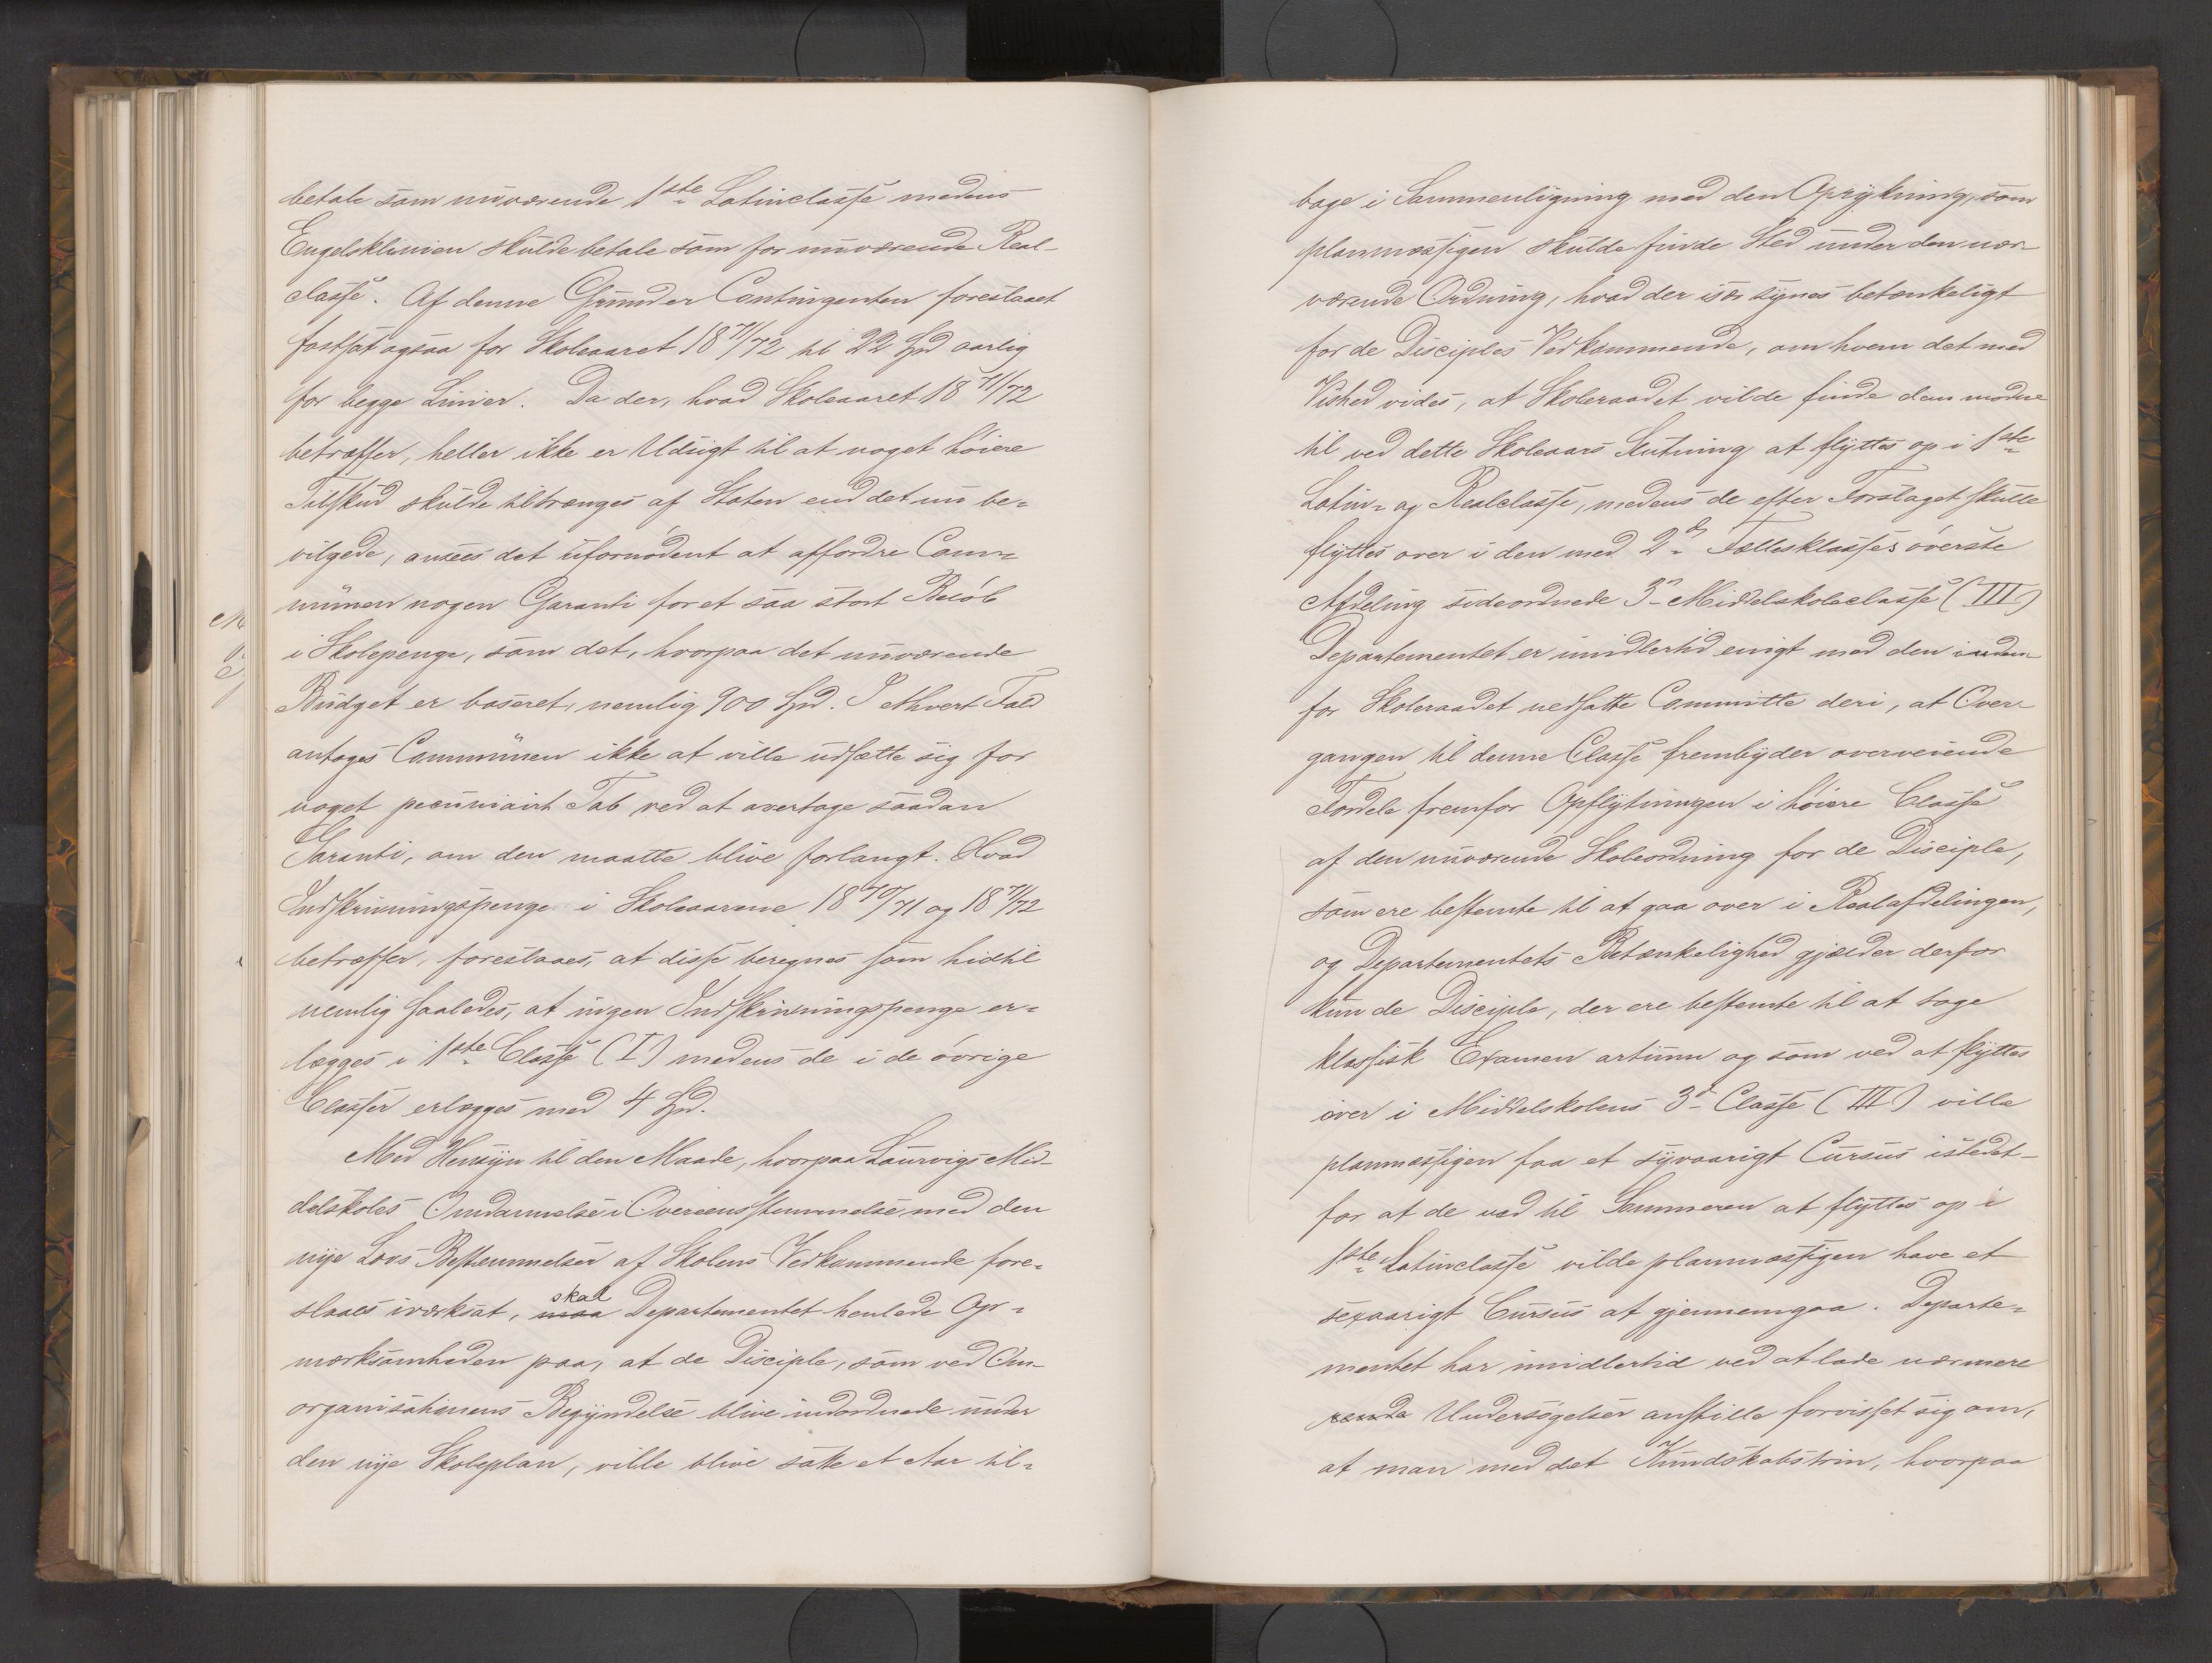 betale som nuværende 1ste Latinclasse medens
Engelsklinien skulde betale som for nuværende Real-
classe. Af denne Grund er Contingenten foreslaaet
fastsat ogsaa for Skoleaaret 18 71/72 til 22 Spd aarlig
for begge Linier. Da der, hvad Skoleaaret 18 71/72
betræffer, heller ikke er Udsigt til at noget høiere
Tilskud skulde tiltrænges af Staten end det nu be-
vilgede, ansees det ufornødent at affordre Com-
munen nogen Garanti for et saa stort Beløb
i Skolepenge, som det, hvorpaa det nuværende
Budget er baseret, nemlig 900 Spd. I ethvert Fald
antages Communen ikke at ville udsætte sig for
noget pecuniairt Tab ved at overtage saadan
Garanti, om den maatte blive forlangt. Hvad
Indskrivningspenge i Skoleaarene 18 70/71 og 18 71/72
betræffer, foreslaaes, at disse beregnes som hidtil
nemlig saaledes, at ingen Indskrivningspenge er-
lægges i 1ste Classe (I) medens de i de øvrige
Classer erlægges med 4 Spd.
Med Hensyn til den Maade, hvorpaa Laurvigs Mid-
delskoles Omdannelse i Overeensstemmelse med den
nye Lovs Bestemmelser af Skolens Vedkommende fore-
slaaes iværksat, maa skal Departementet henlede Op-
mærksomheden paa, at de Disciple, som ved Om-
organisationens Begyndelse blive indordnede under
den nye Skoleplan, ville blive satte et Aar til-
bage i Sammenligning med den Oprykning, som
planmæssigen skulde finde Sted under den nær-
værende Ordning, hvad der især synes betænkeligt
for de Disciples Vedkommende, om hvem det med
Vished vides, at Skoleraadet vilde finde dem modne
til ved dette Skoleaars Slutning at flyttes op i 1ste
Latin- og Realclasse, medens de efter Forslaget skulle
flyttes over i den med 2den Fællesklasses øverste
Afdeling sideordnede 3die Middelskoleclasse (III)
Departementet er imidlertid enigt med den inden
for Skoleraadet nedsatte Committe deri, at Over-
gangen til denne Classe frembyder overveiende
Fordele fremfor Opflytningen i høiere Classe
af den nuværende Skoleordning for de Disciple,
som ere bestemte til at gaa over i Realafdelingen,
og Departementets Betænkelighed gjælder derfor
kun de Disciple, der ere bestemte til at tage
klassisk Examen artium og som ved at flyttes
over i Middelskolens 3die Classe (III) ville
planmæssigen faa et syvaarigt Cursus istedet-
for at de ved til Sommeren at flyttes op i
1ste Latinclasse vilde planmæssigen have et
sexaarigt Cursus at gjennemgaa. Departe-
mentet har imidlertid ved at lade nærmere
Undersøgelser anstille forvisset sig om,
at man med det Kundskabstrin, hvorpaa